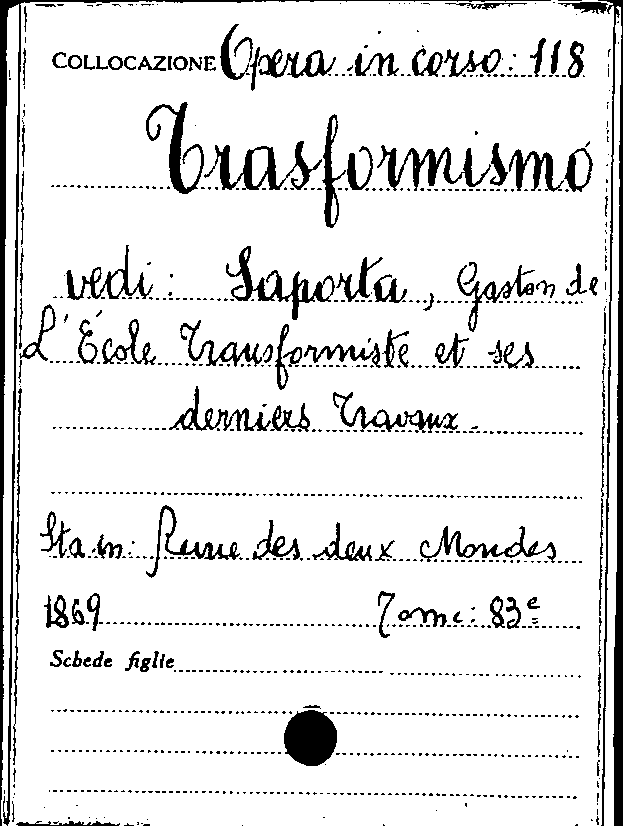 COLLOCAZIONE Opera in corso: 118
Trasformismo
vedi: Saporta, Gaston de
L'École Transformiste et ses
derniers Travaux.
Sta in: Revue des deux Mondes
1869 Tome: 83e
Schede figlie